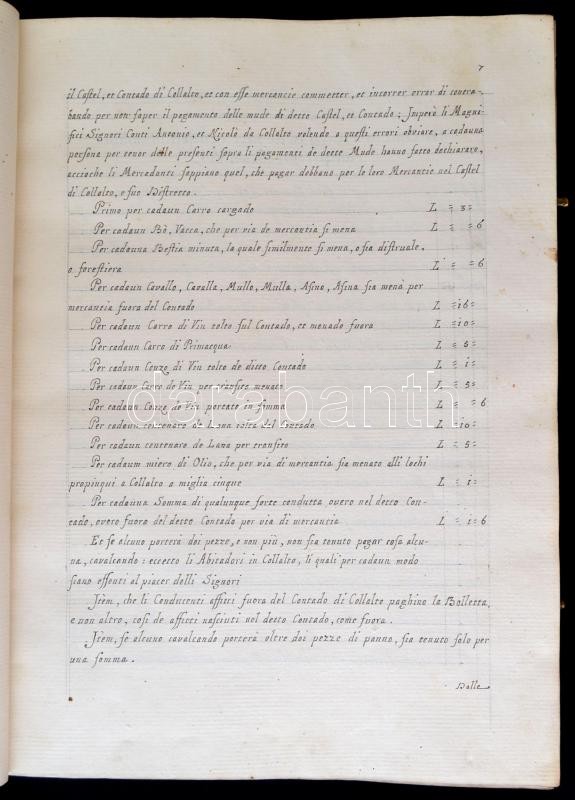 7
il Castel, et Contado di Collalto, et con esse mercancie commetter, et incorrer error di contra-
bando per non saper il pagamento delle mude di detto Castel, et Contado: Imperò li Magni-
fici Signori Conti Antonio, et Nicolò da Collalto volendo a questi errori obviare, a cadauna
persona per tenor delle presenti sopra li pagamenti de dette Mude hanno fatto dechiarare,
accioche li Mercadanti sappiano quel, che pagar debbano per le loro Mercantie nel Castel
di Collalto, e suo Distretto.
Primo per cadaun Carro cargado L = 3=
Per cadaun Bò, Vacca, che per via de mercantia si mena L = =6
Per cadauna Bestia minuta, la quale similmente si mena, o sia distruale,
o forestiera L = =6
Per cadaun Cavallo, Cavalla, Mullo, Mulla, Asino, Asina sia menà per
mercantia fuora del Contado L =16=
Per cadaun Carro di Vin tolto sul Contado, et menado fuora L =10=
Per cadaun Carro di Primacqua L = 5=
Per cadaun Conzo di Vin tolto de ditto Contado L = 1=
Per cadaun Carro de Vin per transito menato L = 5=
Per cadaun Conzo de Vin portato in somma L = =6
Per cadaun centenaro de Lana tolta del Contado L =10=
Per cadaun centenaro de Lana per transito L = 5=
Per cadaum miero di Olio, che per via di mercantia sia menato alli lochi
propinqui a Collalto a miglia cinque L = 1=
Per cadauna Somma di qualunque sorte condutta overo nel detto Con-
tado, overo fuora del detto Contado per via di mercantia L = 1=6
Et se alcuno porterà doi pezze, e non più, non sia tenuto pagar cosa alcu-
na, cavalcando: eccetto li Abitadori in Collalto, li quali per cadaun modo
siano essenti al piacer delli Signori
Item, che li Conducenti affitti fuora del Contado di Collalto paghino la Bolletta,
e non altro, così de affitti nasciuti nel detto Contado, come fuora.
Item, se alcuno cavalcando porterà oltre doi pezze di panno, sia tenuto solo per
una somma.
Dalle
darabanth